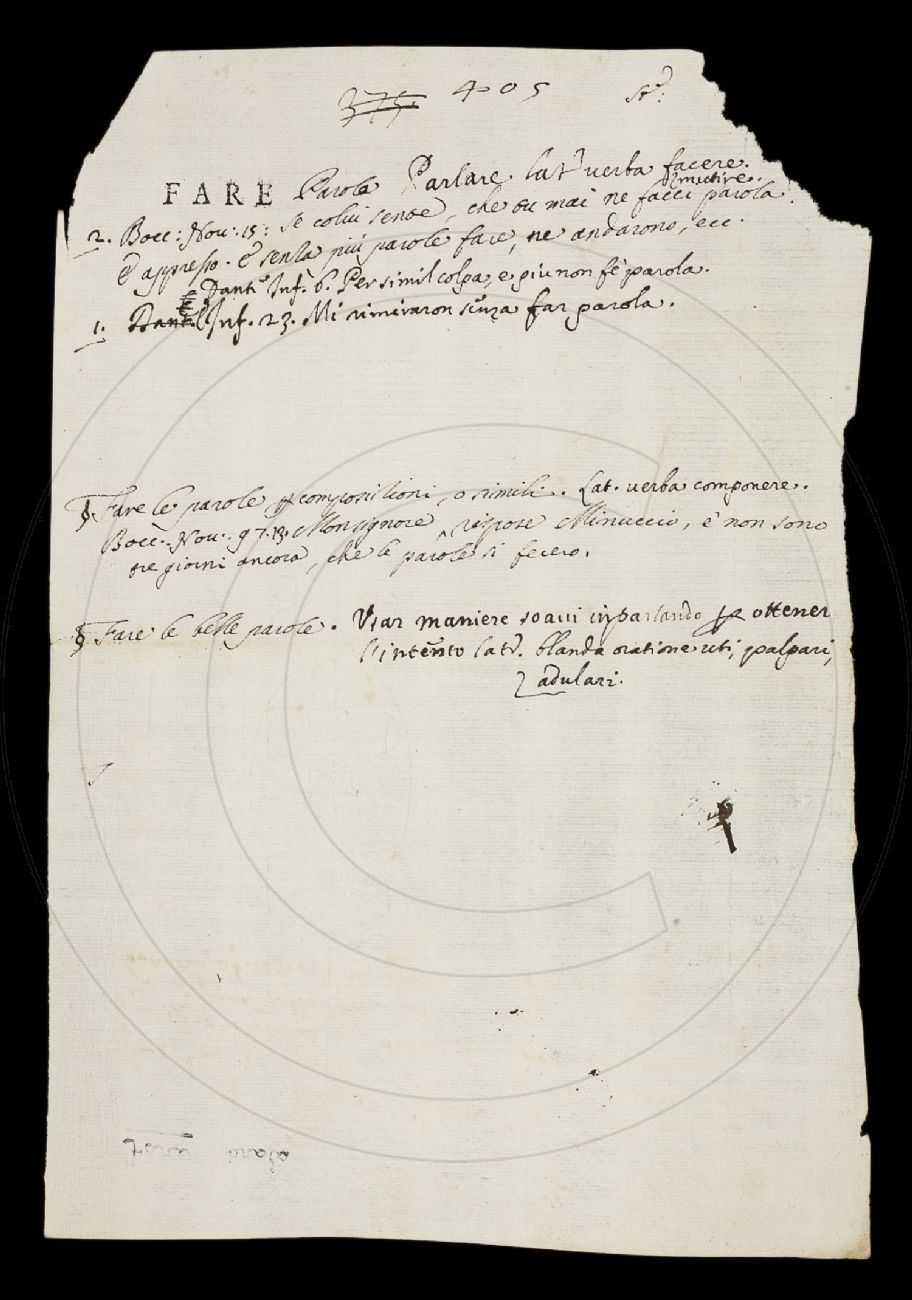 375. 405 Stᵃ:
FARE Parola Parlare. latᵉ verba facere.
mutire.
2. Bocc: Nov: 15: Se colui sente, che tu mai ne facci parola.
E appresso. E senza più parole fare, ne andarono, ecc.
Dantᵉ Inf. 6. Per simil colpa, e piu non fè parola.
1. Dant. E Inf. 23. Mi rimiraron senza far parola.
§ Fare le parole p composizioni, o simili. Lat. verba componere.
Bocc: Nov: 97.13. Monsignore, rispose Minuccio, e' non sono
tre giorni ancora, che le parole si fecero.
§ Fare le belle parole. Usar maniere soavi in parlando p ottener
l'intento latᵉ. blanda oratione uti, palpari,
adulari.